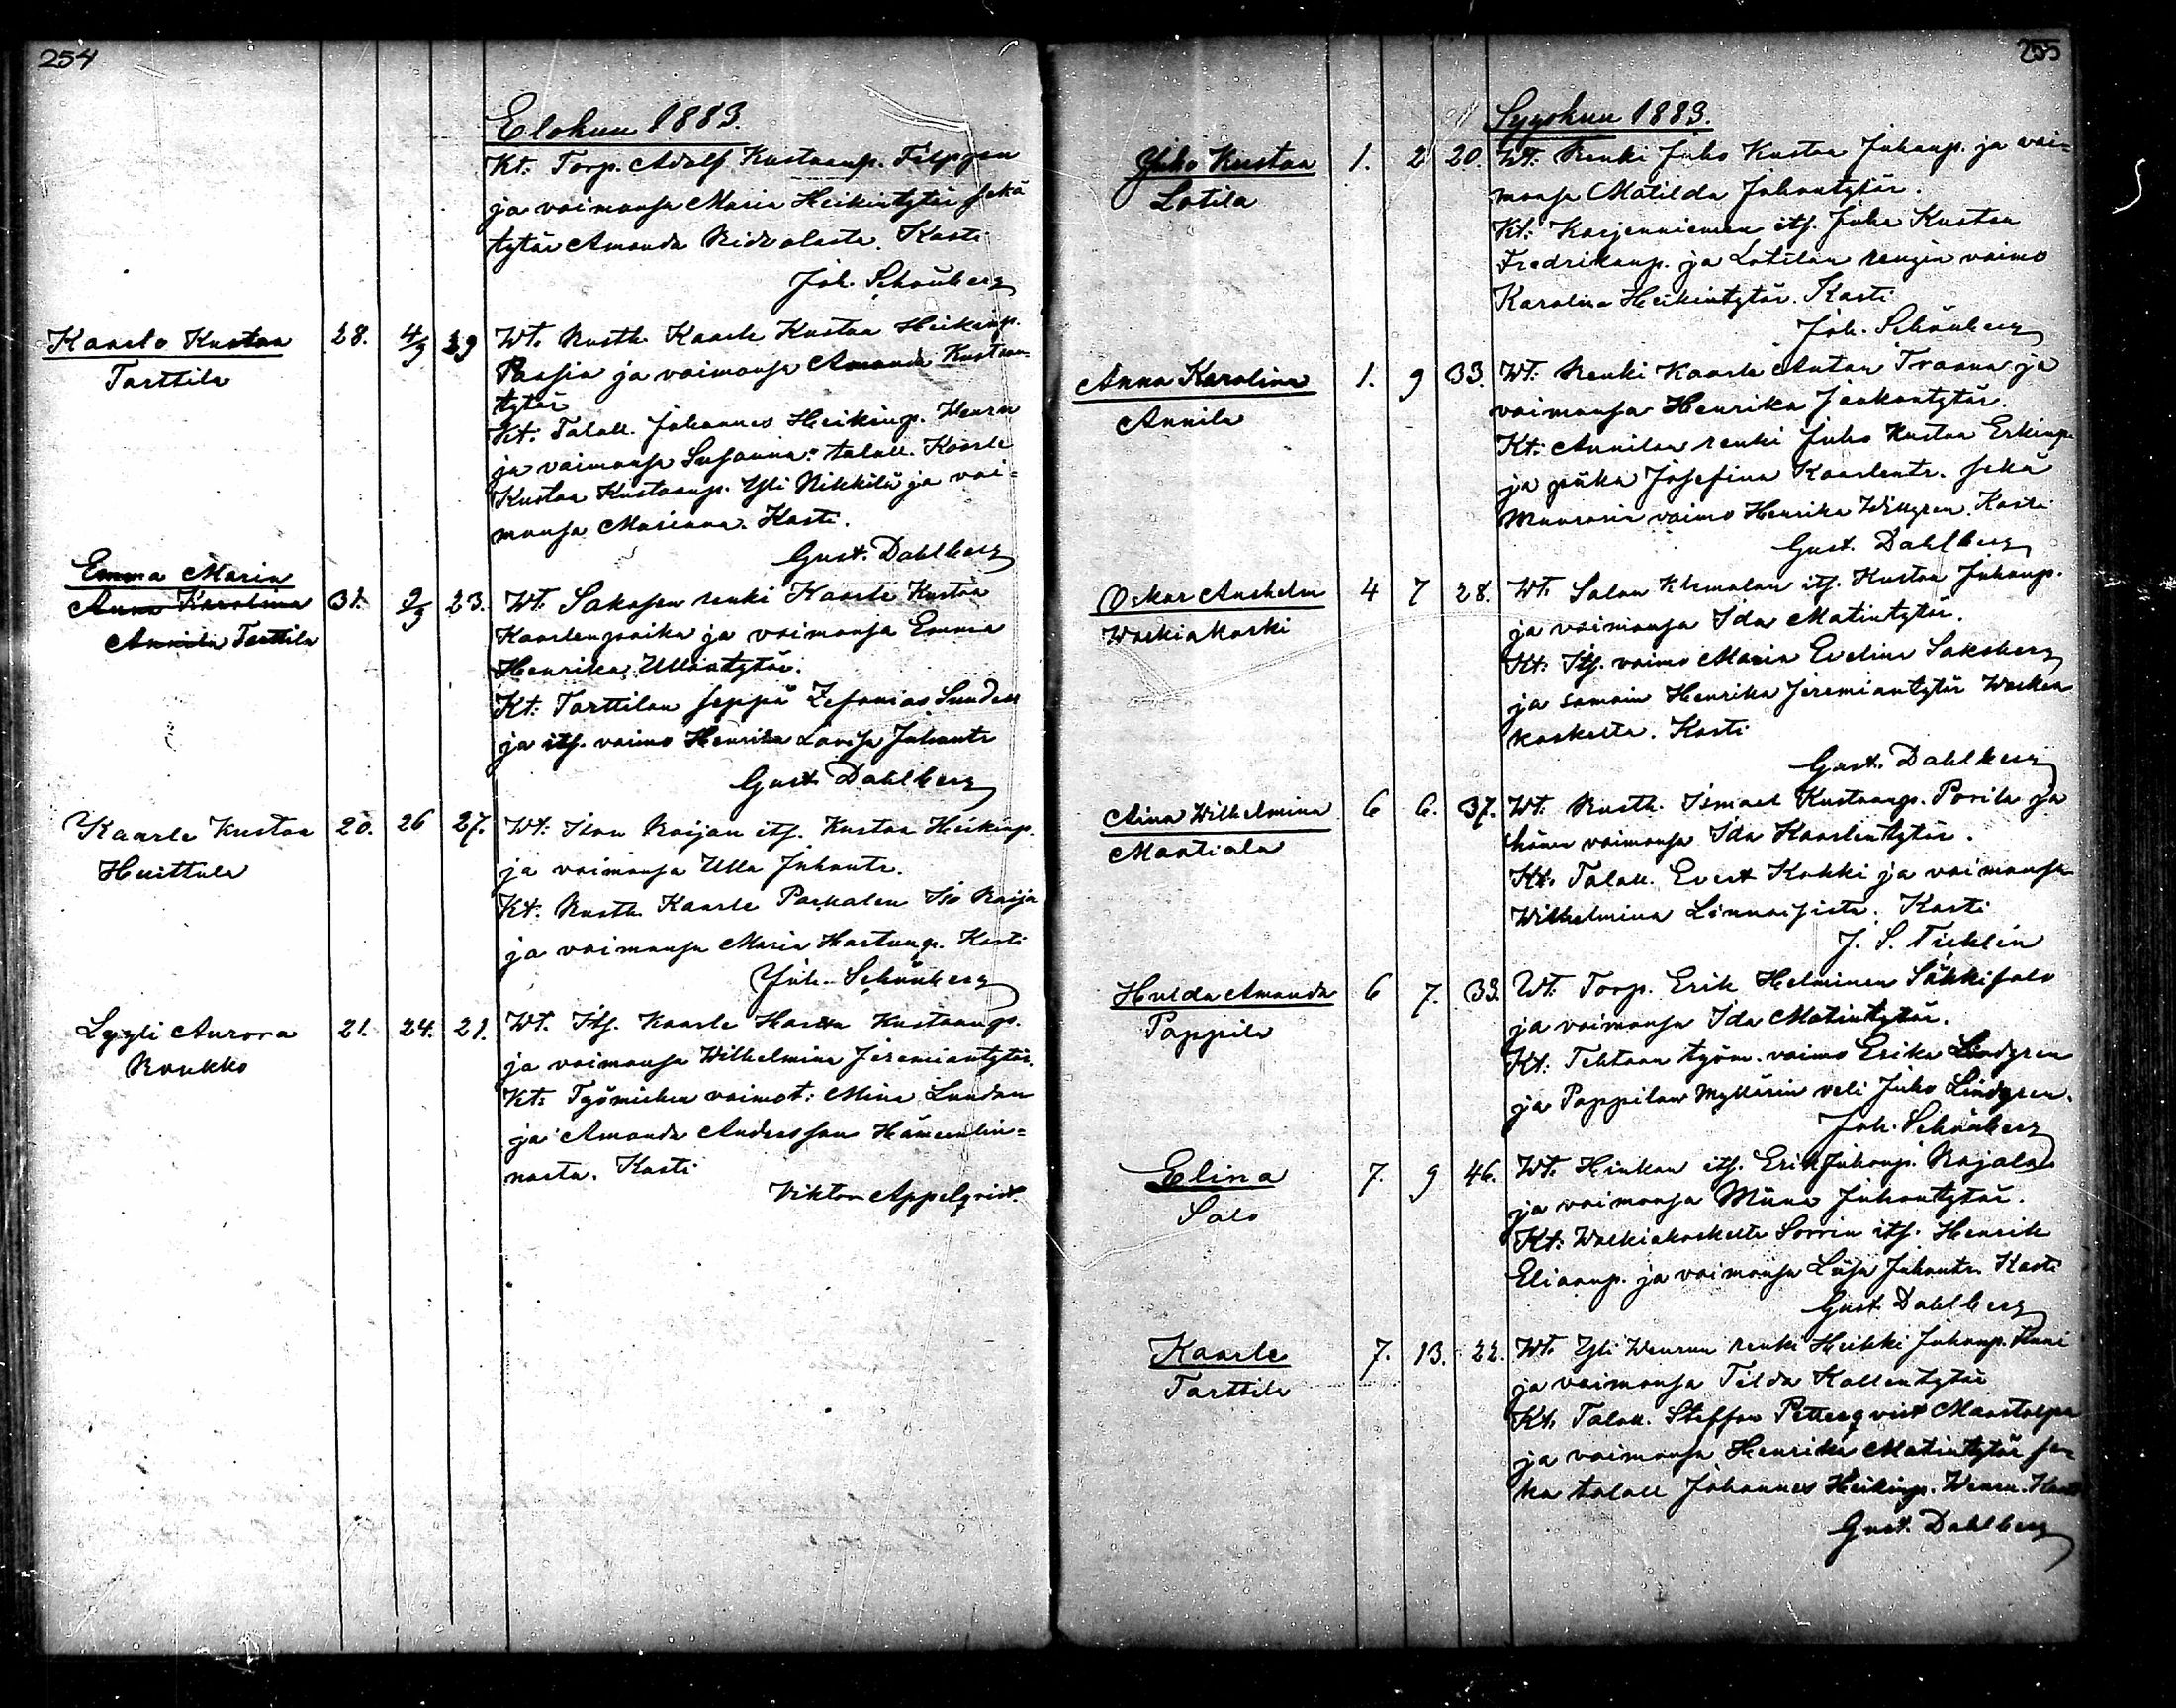 254
Elokuu 1883.
Kt: Torp. Adolf Kustaanp. Filppu
ja vaimonsa Maria Heikintytär sekä
tytär Amanda Ridvalasta. Kasti
Joh. Schönberg
Kaarlo Kustaa 28. 4/9 29 Wt. Rusth. Kaarle Kustaa Heikinp.
Tarttila
Passin ja vaimonsa Amanda Kustaan-
tytär
Kt: Talall. Johannes Heikinp. Wenu
ja vaimonsa Susanna: talall. Kaarle
Kustaa Kustaanp. Yli Nikkilä ja vai-
monsa Mariana. Kasti.
Gust. Dahlberg
Emma Maria
Anna Karolina 31. 2/9 23. Wt. Saksan renki Kaarle Kustaa
Annila Tarttila
Kaarlenpoika ja vaimonsa Emma
Henrika Ullantytär.
Kt: Tarttilan seppä Zefanias Sundell
ja its. vaimo Henrika Lovisa Juhantr
Gust. Dahlberg
Kaarle Kustaa 20. 26 27. Wt: Ison Raijan its. Kustaa Heikinp.
Huittula
ja vaimonsa Ulla Juhantr.
Kt. Rusth. Kaarle Paskalen Iso Raija
ja vaimonsa Maria Hartung. Kasti
Joh. Schönberg
Lyyli Aurora 21. 24. 21. Wt. Its. Kaarle Kustaanp.
Roukko
ja vaimonsa Wilhelmina Jeremiantytär.
Kt: Työmiehen vaimot: Mina Lundan
ja Amanda Andersson Hämeenlin-
nasta. Kasti
Viktor Appelqvist.
255
Syyskuu 1883.
Juho Kustaa 1. 2 20. Wt. Renki Juho Kustaa Juhanp. ja vai-
Lotila
monsa Matilda Juhantytär.
Kt: Karjenniemen its. Juho Kustaa
Fredrikanp. ja Lotilan rengin vaimo
Karolina Heikintytär. Kasti
Joh. Schönberg
Anna Karolina 1. 9 33. Wt. Renki Kaarle Antan Traana ja
Annila
vaimonsa Henrika Jaakontytär.
Kt: Annilan renki Juho Kustaa Erkinp.
ja piika Josefina Kaarlentr. sekä
Muurarin vaimo Henrika Willgren. Kasti
Gust. Dahlberg
Oskar Anshelm 4 7 28. Wt. Salon its. Kustaa Juhanp.
Walkiakoski
ja vaimonsa Ida Matintytär.
Kt: Its. vaimo Maria Evelina Saksberg
ja samoin Henrika Jeremiantytär Walkea
koskelta. Kasti
Gust. Dahlberg
Aina Wilhelmina 6 6. 37. Wt. Rusth. Ismael Kustaanp. Porila ja
Maatiala
hänen vaimonsa Ida Kaarlentytär.
Kt. Talall. Evert Kokki ja vaimonsa
Wilhelmina Linnaisista. Kasti
J. S. Ticklén
Hulda Amanda 6 7. 33. Wt. Torp. Erik Helminen Säkkisalo
Pappila
ja vaimonsa Ida Matintytär.
Kt: Tehtaan työm. vaimo Erika Lindgren
ja Pappilan Myllärin veli Juho Lindgren.
Joh. Schönberg
Elina 7. 9 46. Wt. Hinkan its. Erik Juhanp. Rajala
Salo
ja vaimonsa Miina Juhantytär.
Kt: Walkiakoskelta Sorrin its. Henrik
Eliaanp. ja vaimonsa Liisa Juhantr. Kasti
Gust Dahlberg
Kaarle 7. 13. 22. Wt. Yli Wenun renki Heikki Juhanp.
Tarttila
ja vaimonsa Tilda Kallentytär
Kt. Talall. Steffan Petterqvist Maastalpa
ja vaimonsa Henrika Matintytär se-
kä talall Johannes Heikinp. Wenu. Kasti
Gust. Dahlberg